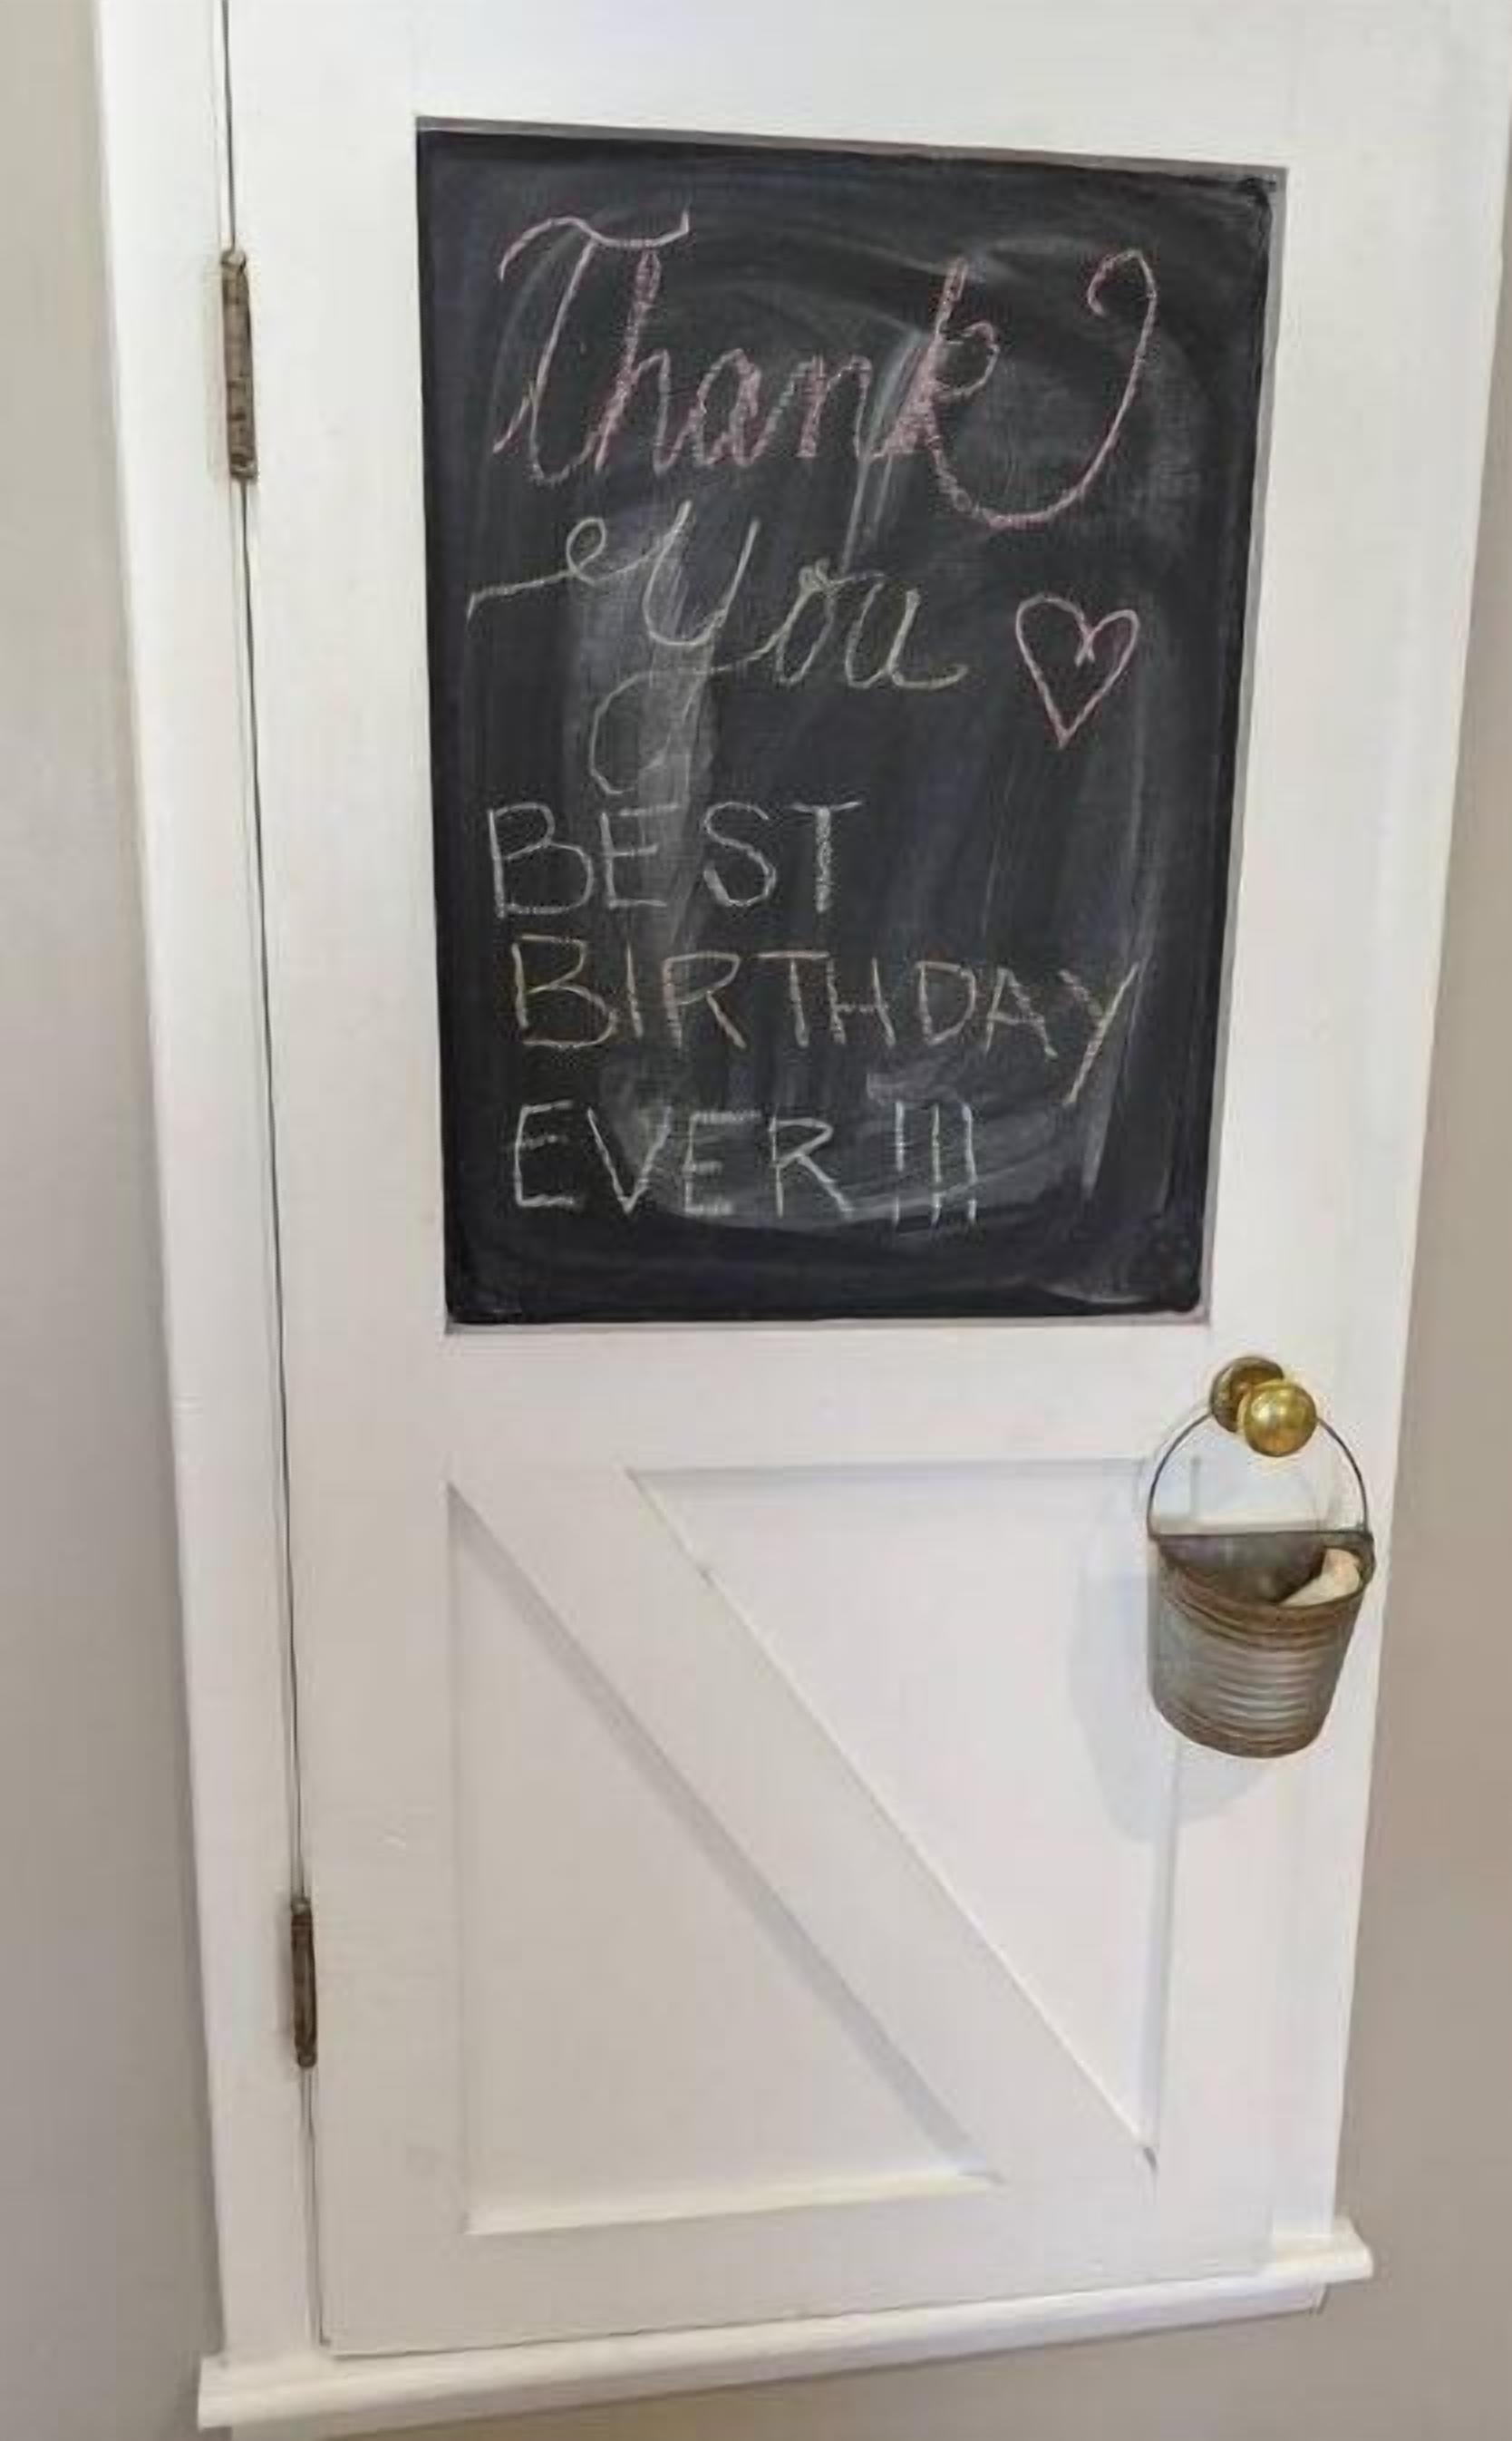 Thank
You
BEST
BIRTHDAY
EVER!!!